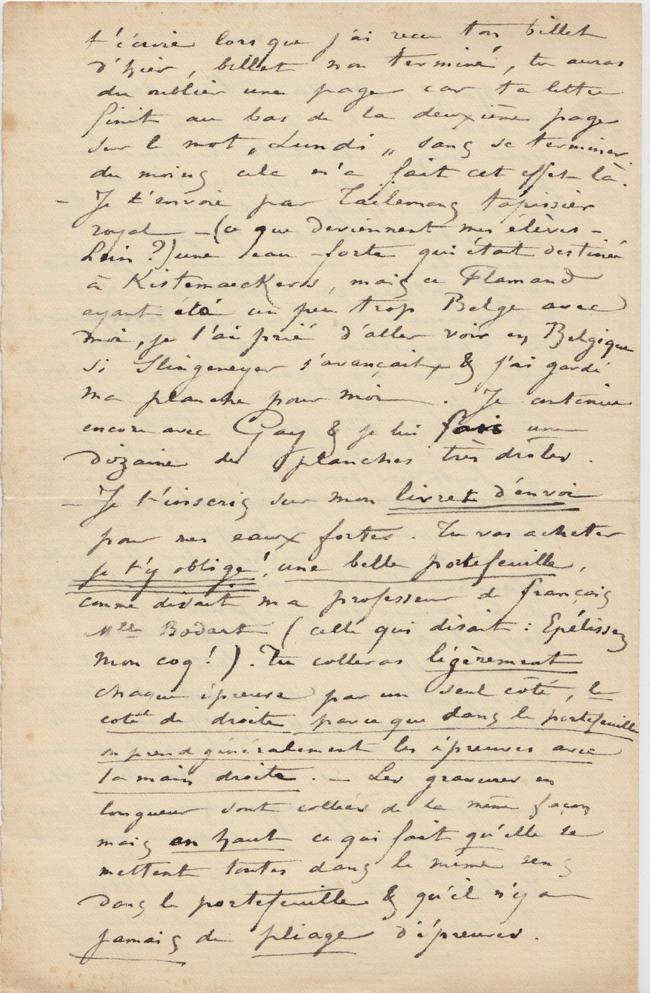 t'écrire lorsque j'ai reçu ton billet
d'hier, billet non terminé, tu auras
du oublier une page car ta lettre
finit au bas de la deuxième page
sur le mot „Lundi„ sans se terminer,
du moins cela m'a fait cet effet là.
– Je t'envoie par Taelemans tapissier
royal – (ce que deviennent mes élèves –
hein ?) une eau-forte qui était destinée
à Kistemaeckers, mais ce Flamand
ayant été un peu trop Belge avec
moi, je l'ai prié d'aller voir en Belgique
si Slingeneyer s'avançait & j'ai gardé
ma planche pour moi. Je continue
encore avec Gay & je lui fais une
dizaine de planches très drôles.
– Je t'inscris sur mon livret d'envoi
pour mes eaux fortes. Tu vas acheter
je t'y oblige! une belle portefeuille,
comme disait ma professeur de français
Mlle Bodart (celle qui disait : Epélissez
mon coq!). Tu colleras légèrement
chaque épreuve par un seul coté, le
coté de droite parce que dans le portefeuille
on prend généralement les épreuves avec
la main droite. – Les gravures en
longueur sont collées de la même façon
mais en haut ce qui fait qu'elle se
mettent toutes dans le même sens
dans le portefeuille & qu'il n'y a
jamais de pliage d'épreuves.